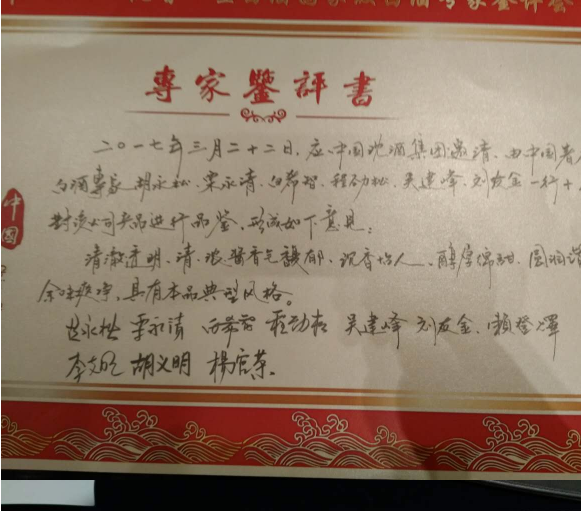 專家鑒評書
二〇一七年三月二十二日，应中国沈酒集团邀请，由中国著
白酒专家胡永松、栗永清、白希智、程劲松、吴建峰、刘友金一行十
对贵公司产品进行品鉴，形成如下意见：
清澈透明、清、浓酱香气馥郁、沉香怡人、醇厚绵甜、圆润谐
余味爽净，具有本品典型风格。
栗永清 白希智 程劲松 吴建峰 刘友金 賴登燡
胡义明 楊官荣
中国